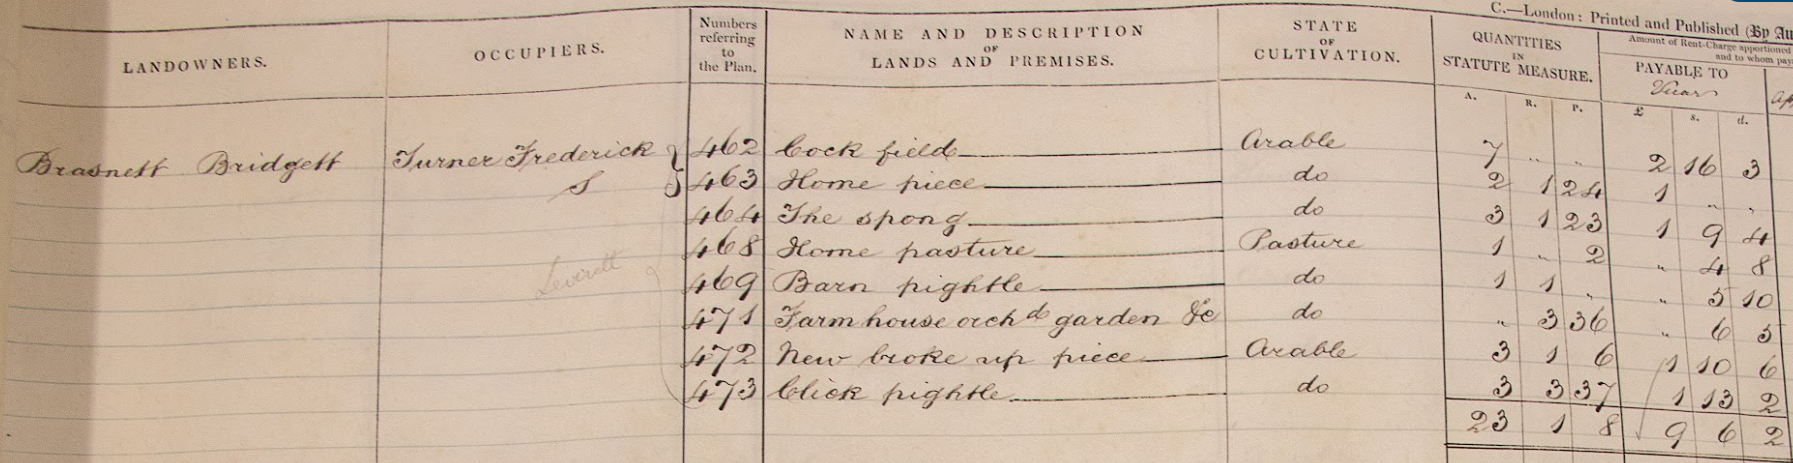 C.—London: Printed and Published (By Au
LANDOWNERS. OCCUPIERS. Numbers referring to the Plan. NAME AND DESCRIPTION OF LANDS AND PREMISES. STATE OF CULTIVATION. QUANTITIES IN STATUTE MEASURE. Amount of Rent-Charge apportioned and to whom pay
PAYABLE TO
Vicar
A. R. P. £ s. d.
Brasnett Bridgett Turner Frederick 462 Cock field Arable 7 " " 2 16 3
S 463 Home piece do 2 1 24 1 " "
464 The spong do 3 1 23 1 9 4
468 Home pasture Pasture 1 " 2 " 4 8
Leverett 469 Barn pightle do 1 1 " " 5 10
471 Farm house orchd garden &c do " 3 36 " 6 5
472 New broke up piece Arable 3 1 6 1 10 6
473 Click pightle do 3 3 37 1 13 2
23 1 8 9 6 2